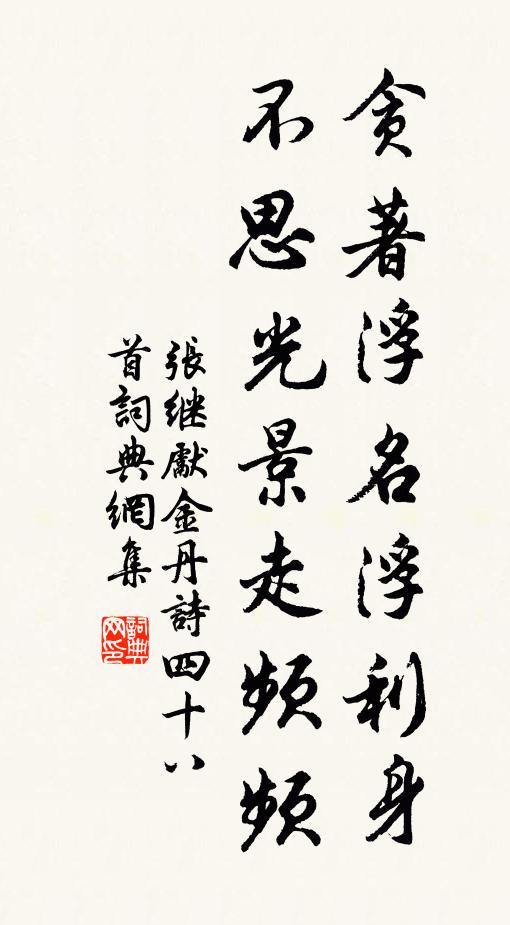 貪著浮名浮利身
不思光景走頻頻
張继獻金丹詩四十八
首詞典網集
詞典
网印